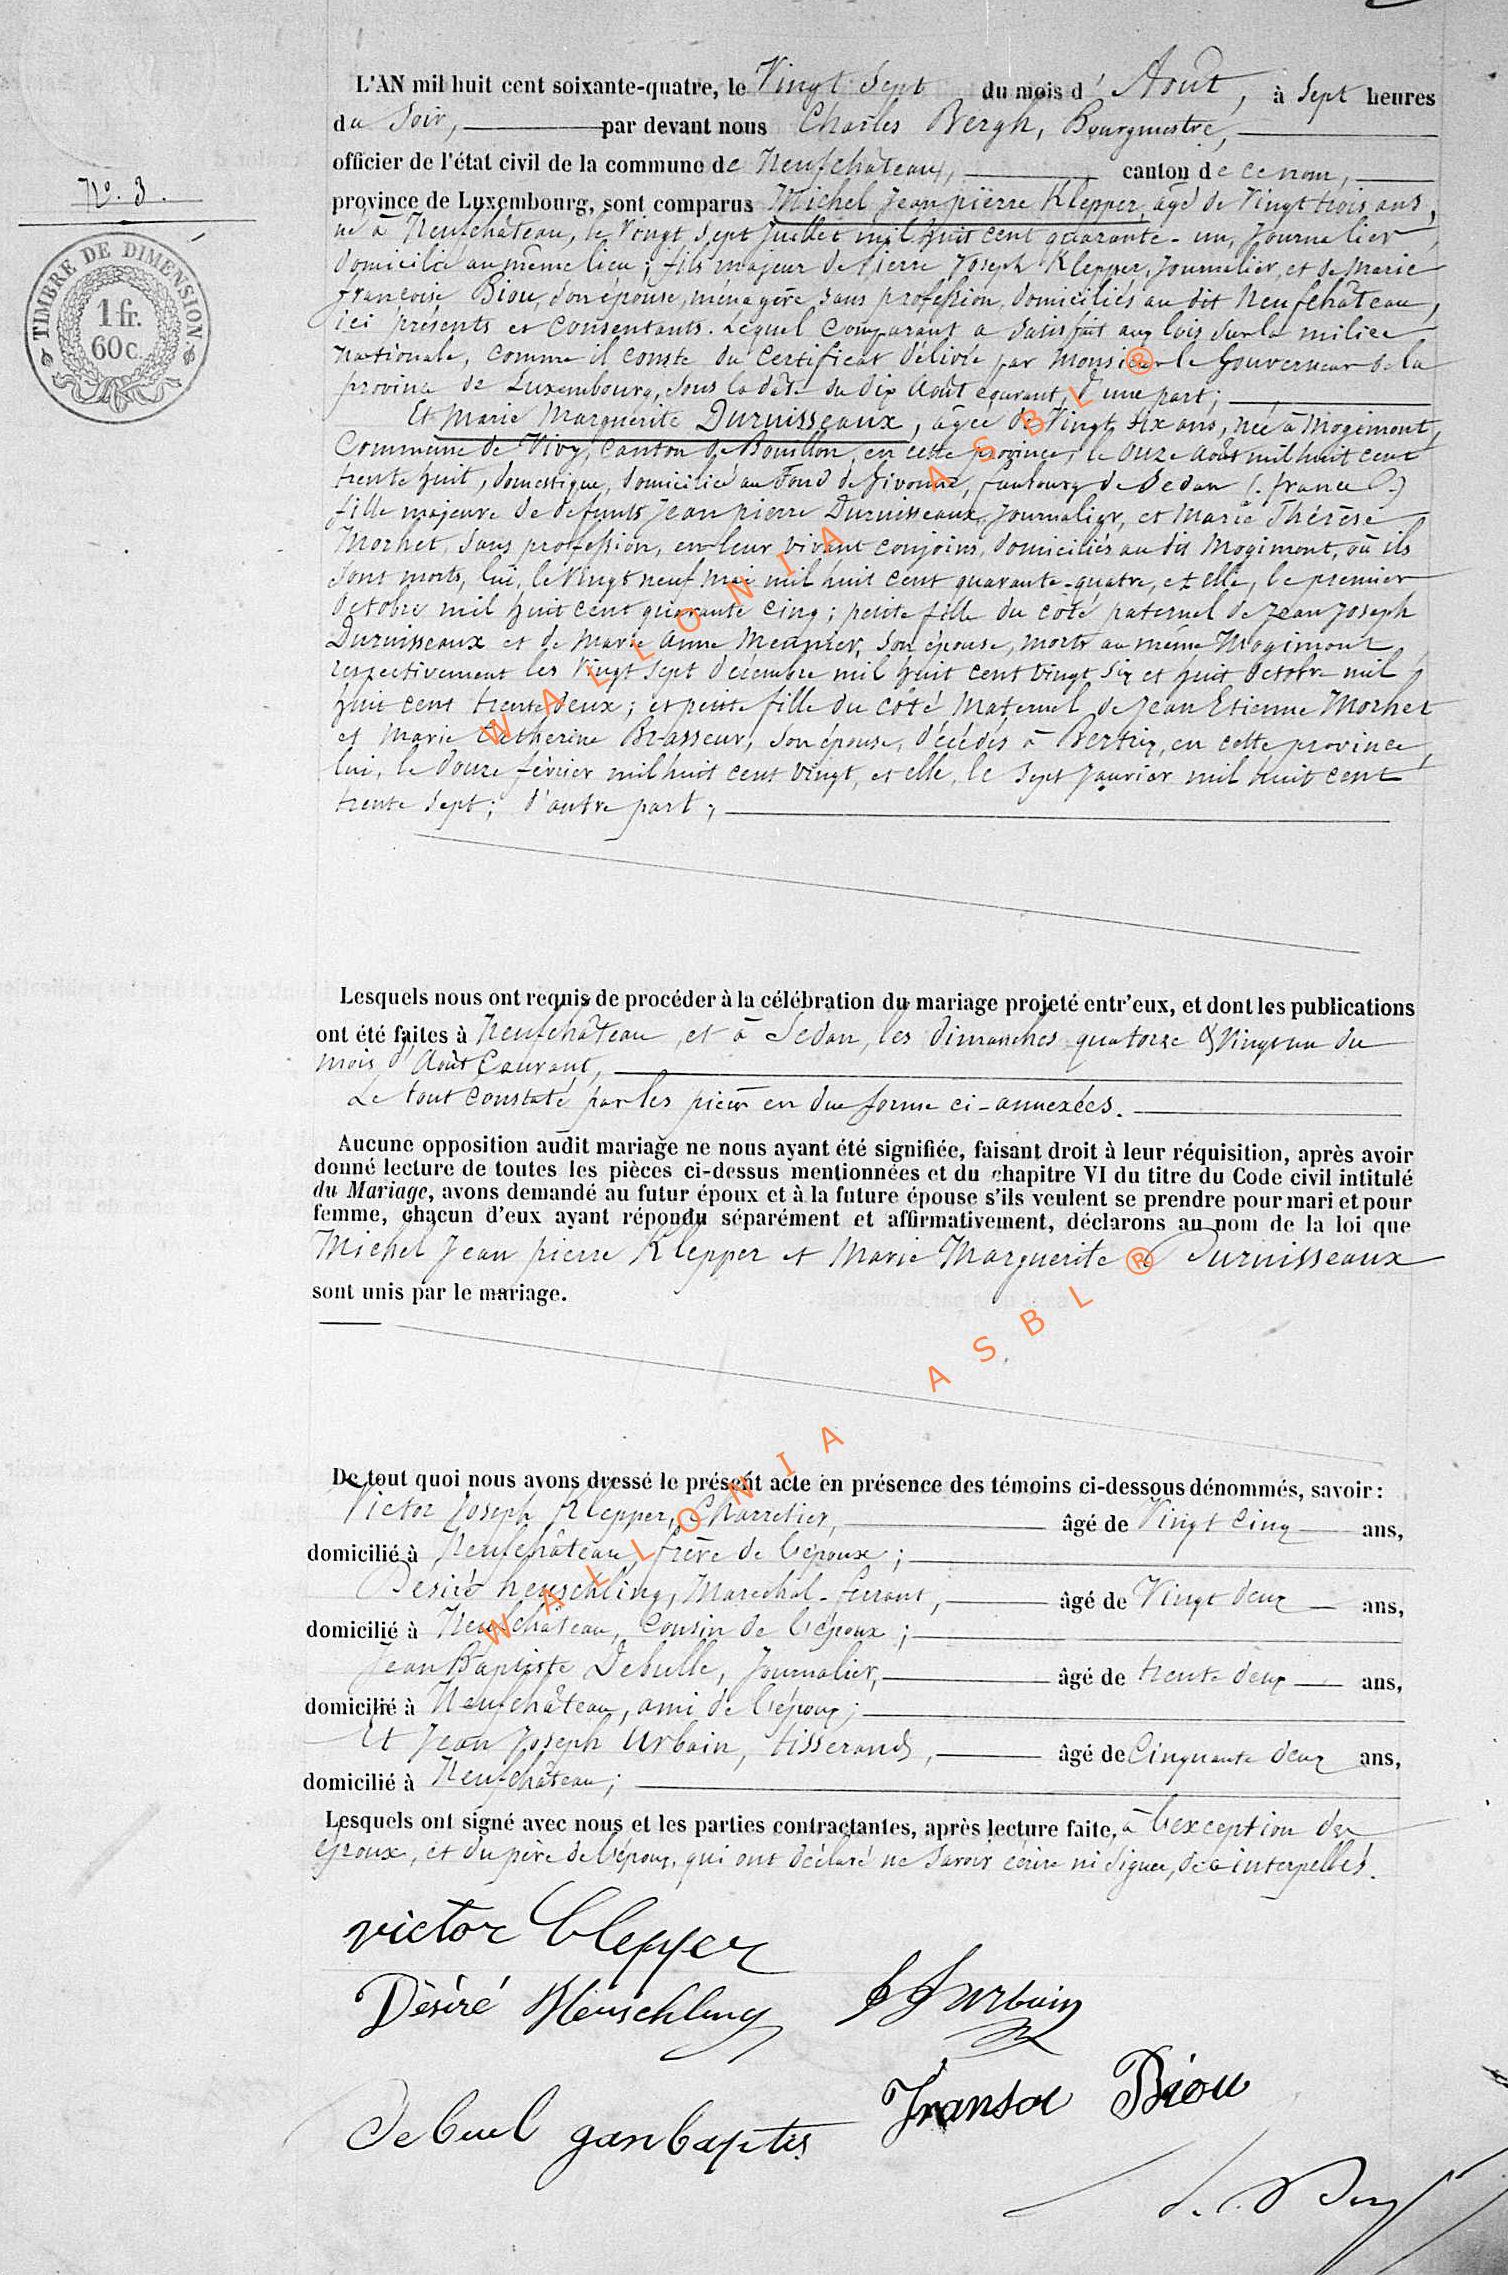 L'AN mil huit cent soixante-quatre, le Vingt Sept du mois d'Août, à Sept heures
du Soir, par devant nous Charles Bergh, Bourgmestre,
officier de l'état civil de la commune de Neufchâteau, canton de ce nom,
N.º 3.
province de Luxembourg, sont comparus Michel Jean pierre Klepper, âgé de Vingt trois ans,
né à Neufchâteau, le Vingt Sept Juillet mil huit cent quarante-un, Journalier,
domicilié au même lieu; fils majeur de pierre Joseph Klepper, Journalier, et de Marie
TIMBRE DE DIMENSION.
1 fr.
60 c.
françoise Biou, son épouse, ménagère sans profession, domiciliés au dit Neufchâteau,
ici présents et Consentants. Lequel Comparant a satisfait aux lois sur la milice
nationale, comme il conste du Certificat délivré par Monsieur le Gouverneur de la
province de Luxembourg, sous la date du dix Août courant, d'une part;
Et Marie Marguerite Duruisseaux, âgée de Vingt six ans, née à Mogimont,
Commune de Vivy, Canton de Bouillon, en cette province, le onze Août mil huit cent
trente huit, domestique, domiciliée au Fond de Givonne, faubourg de Sedan (france)
fille majeure de défunts Jean pierre Duruisseaux, Journalier, et Marie Thérèse
Morhet, Sans profession, en leur vivant conjoins, domiciliés au dit Mogimont, où ils
sont morts, lui, le Vingt neuf mai mil huit cent quarante-quatre, et elle, le premier
Octobre mil huit cent quarante cinq; petite fille du côté paternel de Jean Joseph
Duruisseaux et de Marie Anne Meunier, son épouse, morts au même Mogimont
respectivement les Vingt Sept décembre mil huit cent vingt six et huit Octobre mil
huit cent trente deux; et petite fille du côté Maternel de Jean Etienne Morhet
et Marie Catherine Brasseur, Son épouse, décédés à Bertrix, en cette province,
lui, le douze février mil huit cent vingt, et elle, le Sept Janvier mil huit cent
trente Sept; d'autre part;
Lesquels nous ont requis de procéder à la célébration du mariage projeté entr'eux, et dont les publications
ont été faites à Neufchâteau, et à Sedan, les dimanches quatorze & Vingt un du
mois d'Août Courant,
Le tout constaté par les pièces en due forme ci-annexées.
Aucune opposition audit mariage ne nous ayant été signifiée, faisant droit à leur réquisition, après avoir
donné lecture de toutes les pièces ci-dessus mentionnées et du chapitre VI du titre du Code civil intitulé
du Mariage, avons demandé au futur époux et à la future épouse s'ils veulent se prendre pour mari et pour
femme, chacun d'eux ayant répondu séparément et affirmativement, déclarons au nom de la loi que
Michel Jean pierre Klepper et Marie Marguerite Duruisseaux
sont unis par le mariage.
De tout quoi nous avons dressé le présent acte en présence des témoins ci-dessous dénommés, savoir:
Victor Joseph Klepper, Charretier, âgé de Vingt Cinq ans,
domicilié à Neufchâteau, frère de l'époux;
Désiré heuschling, Maréchal-ferrant, âgé de Vingt deux ans,
domicilié à Neufchâteau, Cousin de l'époux;
Jean Baptiste Debulle, Journalier, âgé de trente deux ans,
domicilié à Neufchâteau, ami de l'époux;
Et Jean Joseph Urbain, tisserand, âgé de Cinquante deux ans,
domicilié à Neufchâteau;
Lesquels ont signé avec nous et les parties contractantes, après lecture faite, à l'exception des
époux, et du père de l'époux, qui ont déclaré ne Savoir écrire ni Signer, de ce interpellés.
victor Cleppez
Désiré Heuschling
J J Urbain
Fransoi Biou
Debuel ganbaptis
WALLONIA ASBL ®
WALLONIA ASBL ®